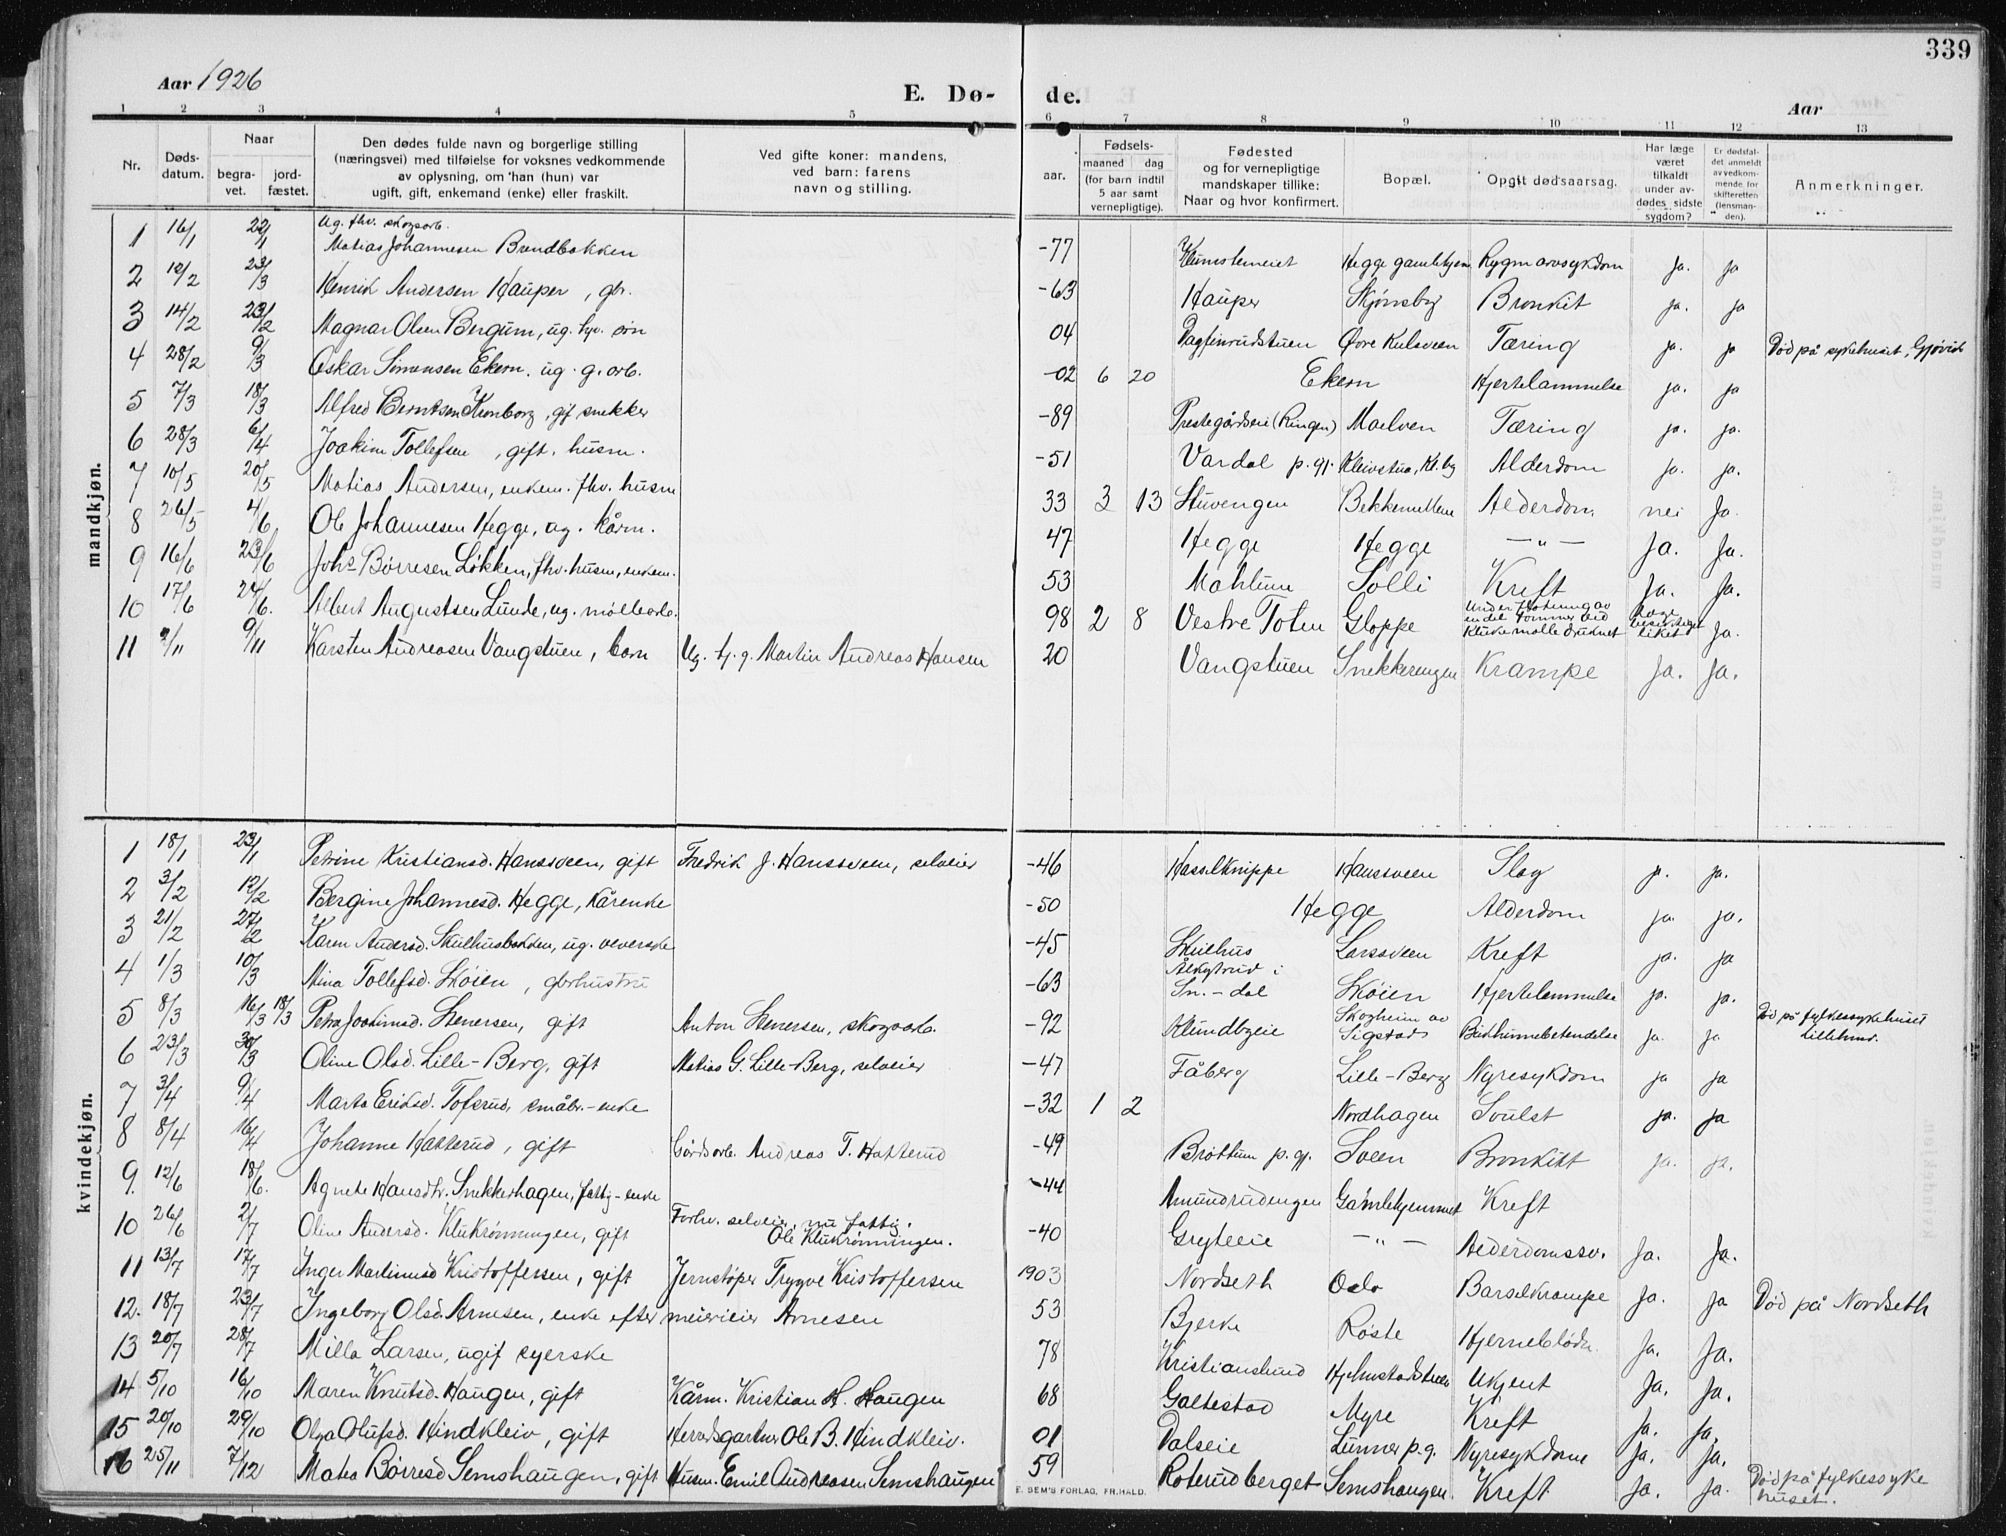 339
Aar 1926
E. Dø-
de.
Aar
1 2 3 4 5 6 7 8 9 10 11 12 13
Nr.
Døds-
datum.
Naar
begra-
vet.
jord-
fæstet.
Den dødes fulde navn og borgerlige stilling
(næringsvei) med tilføielse for voksnes vedkommende
av oplysning, om han (hun) var
ugift, gift, enkemand (enke) eller fraskilt.
Ved gifte koner: mandens,
ved barn: farens
navn og stilling.
Fødsels-
aar.
maaned dag
(for barn indtil
5 aar samt
vernepligtige).
Fødested
og for vernepligtige
mandskaper tillike:
Naar og hvor konfirmert.
Bopæl.
Opgit dødsaarsag.
Har læge
været
tilkaldt
under av-
dødes sidste
sygdom?
Er dødsfal-
det anmeldt
av vedkom-
mende for
skifteretten
(lensman-
den).
Anmerkninger.
mandkjøn.
Ug. fhv. skogsarb.
1 16/1 22/1 Matias Johannesen Brandbakken -77 Hegge gamlehjem Rygmarvsykdom ja. ja
2 12/2 23/3 Henrik Andersen Kauper, gbr. -63 Kauper Skjønsby Bronkit ja. ja
3 14/2 23/2 Magnar Olsen Bergum, ug. hjv. søn 04 Dagfinrudstuen Øvre Kulsveen Tæring ja. ja Død på sykehuset, Gjøvik
4 28/2 9/3 Oskar Simensen Ekern, ug. g. arb. -02 6 20 Ekern Hjertelammelse ja. ja
5 7/3 18/3 Alfred Berntsen Kronborg, gif snekker -89 Prestegårdseie (Ringen) Maelven Tæring ja. ja.
6 28/3 6/4 Joakim Tollefsen, gift, husm. -51 Vardal p. gj. Kleivstua, Kl. by Alderdom ja. ja.
7 10/5 20/5 Matias Andersen, enkem. fhv. husm 33 3 13 Stuvengen Alderdom nei Ja.
8 26/5 4/6. Ole Johannesen Hegge, ug. kårm. 47 Hegge Hegge — " — Ja. Ja.
9 16/6 23/6 Johs Børresen Løkken, fhv. husm, enkem. 53 Mahlum Solli Kreft Ja. Ja.
10 17/6 24/6. Albert Augustsen Lunde, ug. møllearb. 98 2 8 Vestre Toten Gloppe Under fløtning av
endel tømmer ved
mølle druknet Læge
besigtiget
liket Ja.
11 2/11 9/11 Karsten Andreasen Vangstuen, barn Ug. tj. g. Martin Andreas Hansen 20 Vangstuen Snekkerengen Krampe Ja. Ja.
kvindekjøn.
1 18/1 23/1 Petrine Kristiansd. Hanssveen, gift Fredrik J. Hanssveen, selveier -46 Hasselknippe Hanssveen Slag ja. ja.
2 3/2 12/2 Bergine Johannesd. Hegge, kårenke -50 Hegge Alderdom ja. ja.
3 21/2 27/2 Karen Andersd. Skulhusbakken, ug. veverske -45 Skulhus Larssveen Kreft ja. ja
4 1/3 10/3 Mina Tollefsd. Skøien, gbrhustru -63 i
Sn.-dal Skøien Hjertelammelse ja. ja.
5 8/3 16/3 18/3 Petra Joakimsd. Stenersen, gift Anton Stenersen, skogsarb. -92 Klundbyeie Skogheim av
Sigstad Bukhinnebetendelse ja. ja Død på fylkessykehuset
Lilleham.
6 23/3 30/3 Oline Olsd. Lille-Berg, gift Matias G. Lille-Berg, selveier -47 Fåberg Lille-Berg Nyresykdom ja ja
7 3/4 9/4 Marta Eriksd. Tofsrud, småbr.-enke -32 1 2 Nordhagen Svulst ja. ja
8 8/4 16/4 Johanne Hatterud, gift Gårdsarb. Andreas T. Hatterud -49 Brøttum p. gj. Sveen Bronkitt ja. ja.
9. 12/6 18/6. Agnete Hansdtr. Snekkerhagen, fattig-enke -44 Amundrudengen Gamlehjemmet Kreft
10 26/6 2/7 Oline Andersd. Klukrønningen, gift Forhv. selveier, nu fattig.
Ole Klukrønningen. -40 Gryteeie — " — Alderdomssv. Ja. Ja.
11 13/7 17/7 Inger Martinusd Kristoffersen, gift Jernstøper Trygve Kristoffersen 1903 Nordseth Oslo Barselkrampe Ja. Ja Død på Nordseth
12. 18/7 23/7 Ingeborg Olsd. Arnesen, enke efter meierieier Arnesen 53 Bjerke Røste Hjerneblødn. Ja. Ja.
13 20/7 28/7 Milla Larsen, ugif syerske 78 Kristianslund Ukjent Ja. Ja.
14 5/10 16/10 Maren Knutsd. Haugen, gift Kårm. Kristian H. Haugen 68 Galtestad Myre Kreft Ja. Ja.
15 20/10 29/10 Olga Olufsd. Hindkleiv, gift Herredsgartner Ole B. Hindkleiv. 01 Dalseie Lunner p.g. Nyresykdom Ja. Ja.
16 25/11 7/12 Matea Børresd Semshaugen, gift Husm. Emil Andreasen Semshaugen 59 Roterudberget Semshaugen Kreft Ja. Ja. Død på fylkessyke
huset.
E. SEM'S FORLAG, FR.HALD.